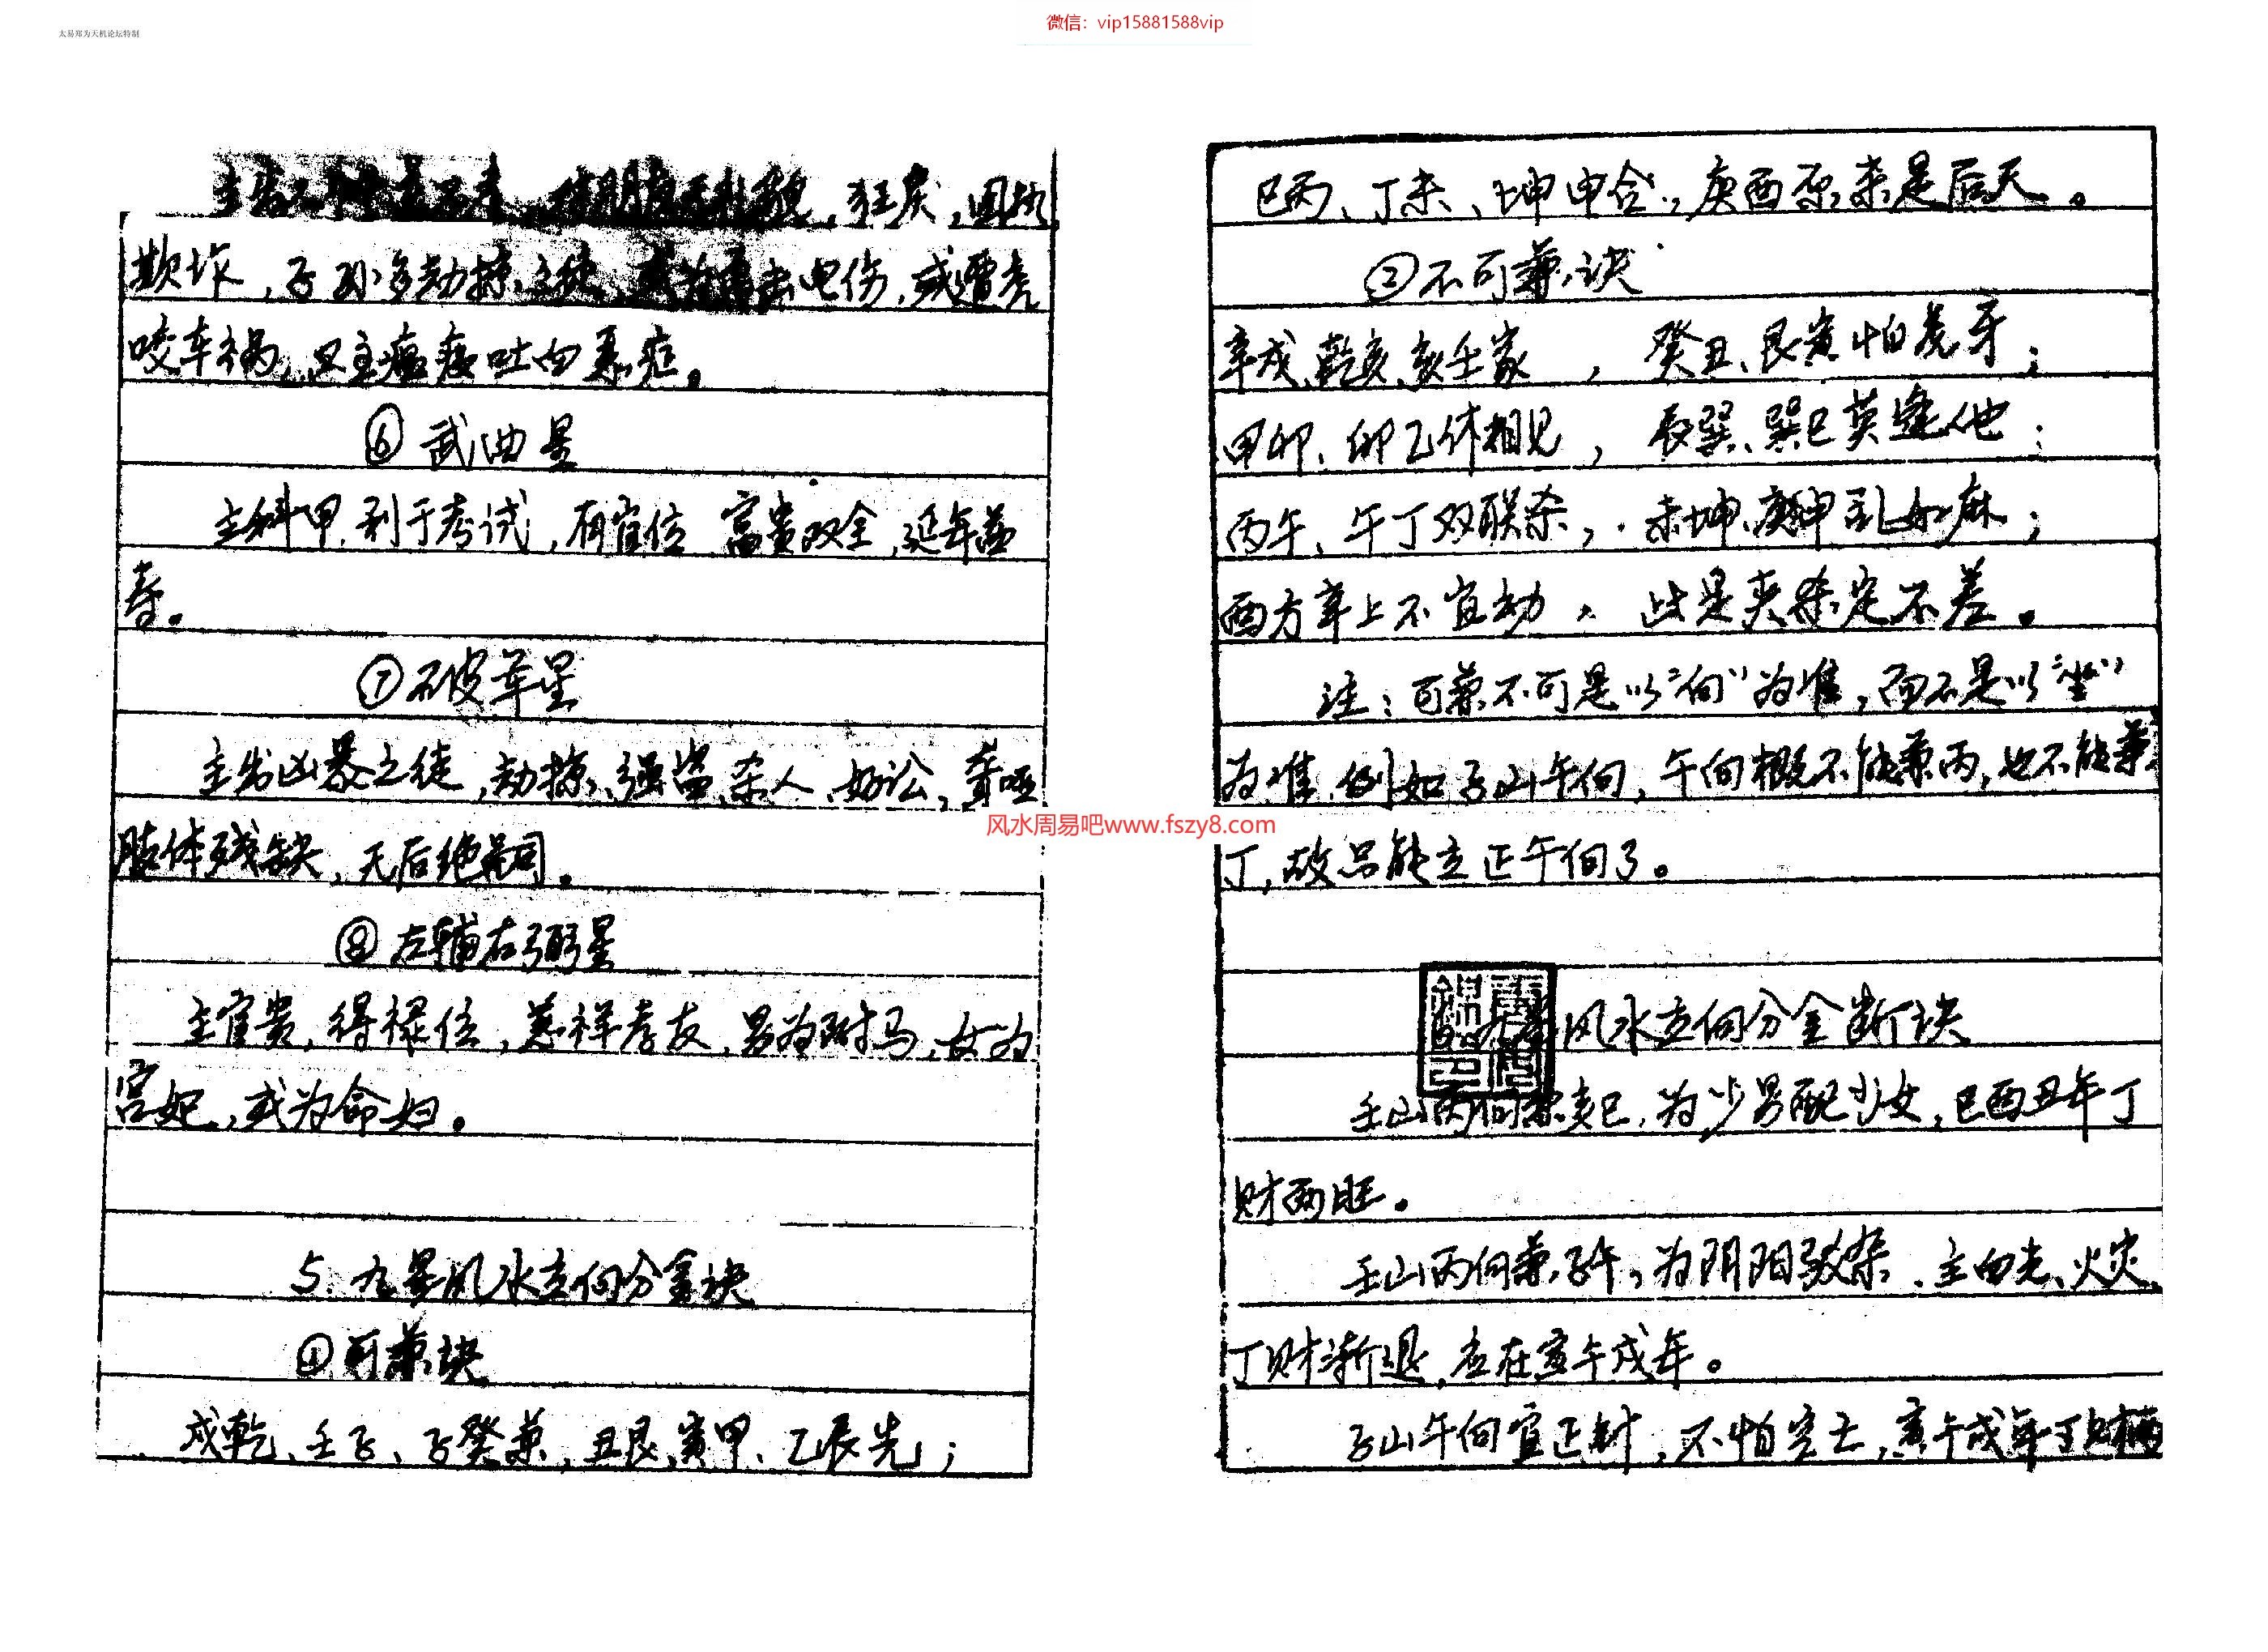 太易郑为天机论坛特制
微信：vip15881588vip
狂戾，固执
欺诈，子孙多劫掠之徒，电伤，或遭虎
咬车祸，又主瘟疫吐血
⑥武曲星
主科甲，利于考试，有官位，富贵双全，延年益
寿。
⑦破军星
主出凶暴之徒，劫掠、强盗、杀人、好讼，聋哑
肢体残缺，无后绝嗣。
⑧左辅右弼星
主官贵，得禄位，慈祥孝友，男为附马，女为
宫妃，或为命妇。
5. 九星风水立向分金诀
①可兼诀
戌乾、壬子、子癸兼，丑艮、寅甲、乙辰先；
巳丙、丁未、坤申合，庚酉原来是后天。
②不可兼诀
辛戌、乾亥、亥壬家，癸丑、艮寅怕虎牙；
甲卯、卯乙休相见，辰巽、巽巳莫逢他；
丙午、午丁双联杀，未坤、庚申乱如麻；
酉方辛上不宜动，此是夹杀定不差。
注：可兼不可是以“向”为准，而不是以“坐”
为准，例如子山午向，午向概不能兼丙，也不能兼
丁，故只能立正午向了。
风水周易吧www.fszy8.com
风水立向分金断诀
壬山丙向兼亥巳，为少男配少女，巳酉丑年丁
财两旺。
壬山丙向兼子午，为阴阳驳杂，主血光、火灾、
丁财渐退，应在寅午戌年。
子山午向宜正针，不怕客土，寅午戌年丁财